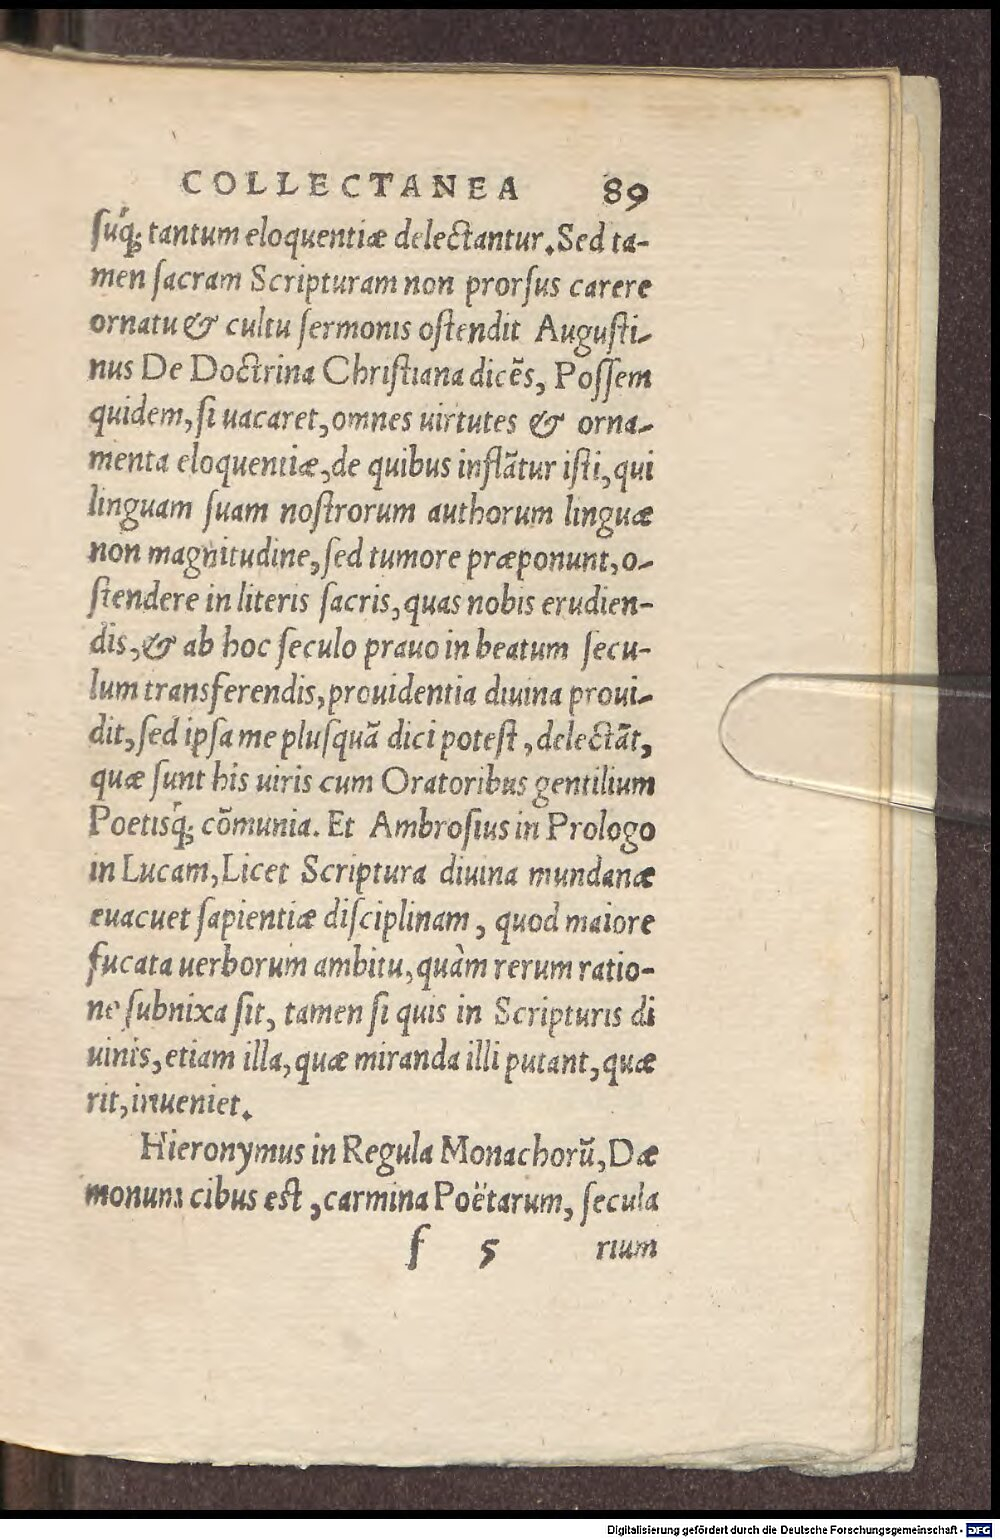 COLLECTANEA 89
ſuq́; tantum eloquentiæ delectantur. Sed ta-
men ſacram Scripturam non prorſus carere
ornatu & cultu ſermonis oſtendit Auguſti-
nus De Doctrina Chriſtiana dicẽs, Poſſem
quidem, ſi uacaret, omnes uirtutes & orna-
menta eloquentiæ, de quibus inflãtur iſti, qui
linguam ſuam noſtrorum authorum linguæ
non magnitudine, ſed tumore præponunt, o-
ſtendere in literis ſacris, quas nobis erudien-
dis, & ab hoc ſeculo prauo in beatum ſecu-
lum transferendis, prouidentia diuina proui-
dit, ſed ipſa me pluſquã dici poteſt, delectãt,
quæ ſunt his uiris cum Oratoribus gentilium
Poetisq́; cõmunia. Et Ambroſius in Prologo
in Lucam, Licet Scriptura diuina mundanæ
euacuet ſapientiæ diſciplinam, quod maiore
fucata uerborum ambitu, quàm rerum ratio-
ne ſubnixa ſit, tamen ſi quis in Scripturis di
uinis, etiam illa, quæ miranda illi putant, quæ
rit, inueniet.
Hieronymus in Regula Monachorũ, Dæ
monum cibus eſt, carmina Poëtarum, ſecula
f 5 rium
Digitalisierung gefördert durch die Deutsche Forschungsgemeinschaft - DFG